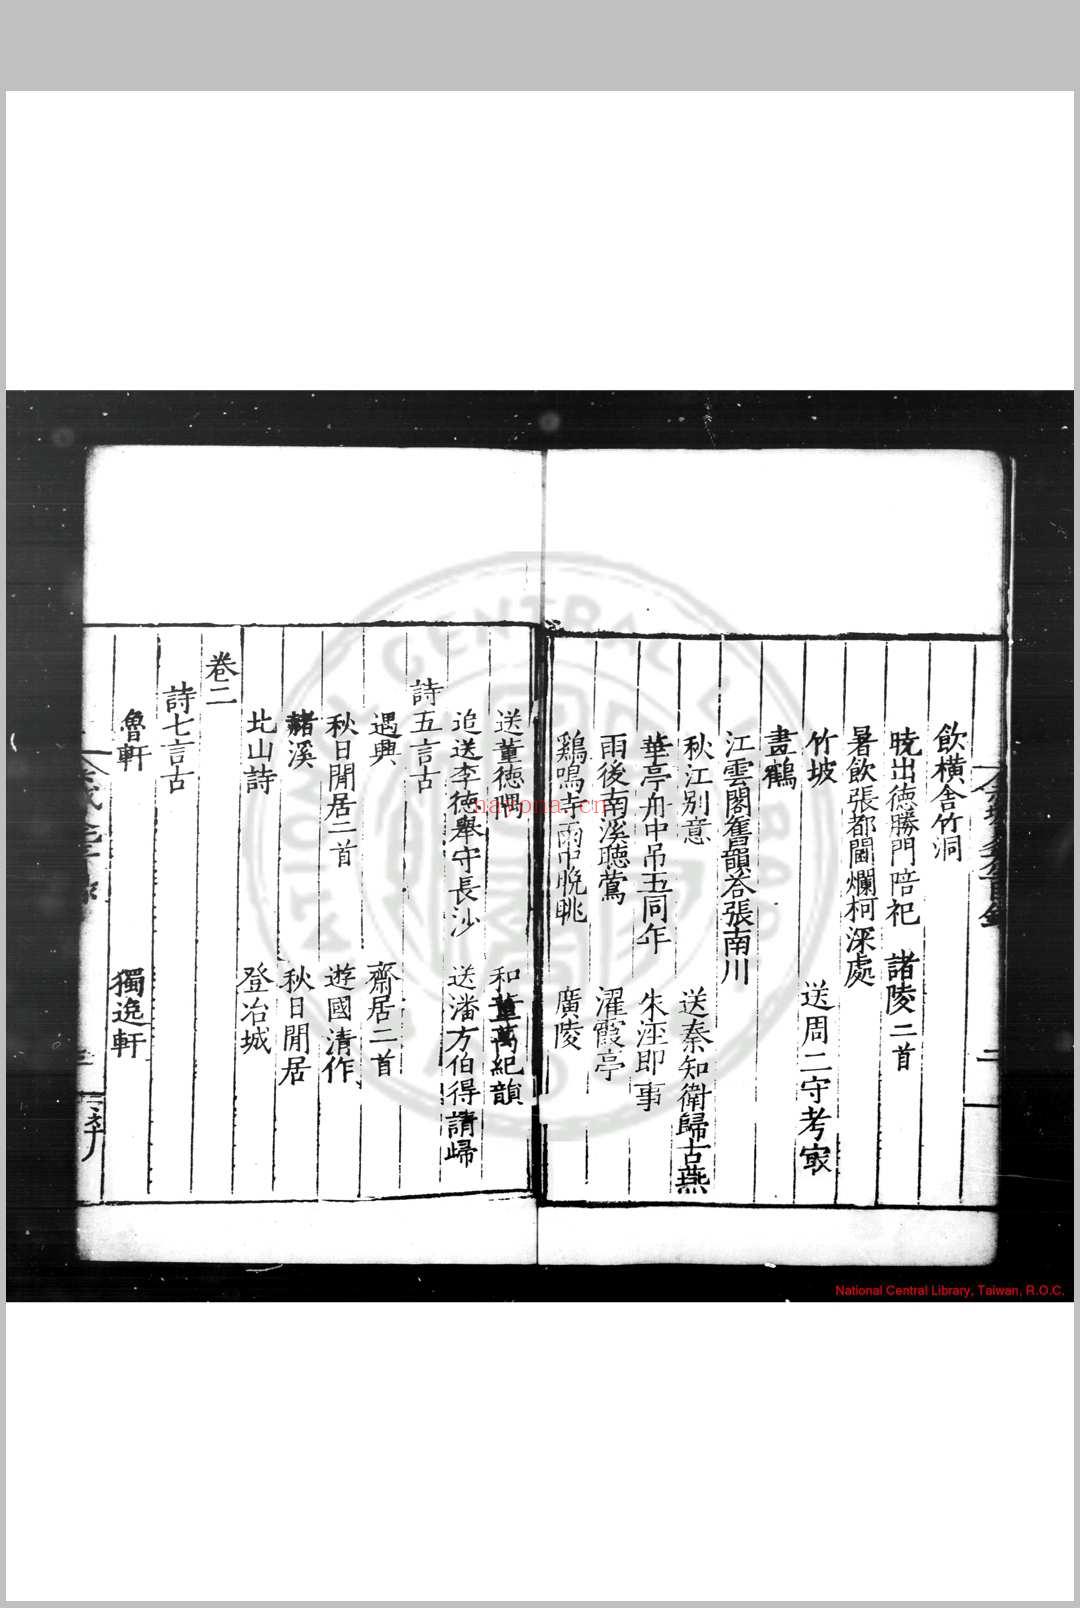 飲橫舍竹洞
曉出德勝門陪祀　諸陵二首
暑飲張都閫爛柯深處
竹坡　送周二守考冣
畫鶴
江雲閣舊韻答張南川
秋江别意　送秦知衛歸古燕
華亭舟中吊五同年　朱涇即事
雨後南溪聽鶯　濯霞亭
鷄鳴寺雨中晚眺　廣陵
送董德隅　和董萬紀韻
追送李德舉守長沙　送潘方伯得請歸
詩五言古
遇興　齋居二首
秋日閒居二首　遊國清作
赭溪　秋日閒居
北山詩　登冶城
卷二
詩七言古
魯軒　獨逸軒
nayona.cn
NATIONAL CENTRAL LIBRARY
National Central Library, Taiwan, R.O.C.